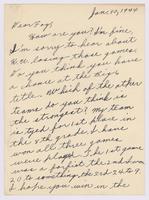 Jan. 30, 1944
Dear Fay,
How are you? I'm fine,
I'm sorry to hear about
losing those games.
Do you think you have
a chance at the Big
title. Which of the other
teams do you think is
the strongest? My team
is tyed for 1st place in
the 8th grade. I have
won all three games
we've played. The 1st game
was a forfeit, the 2nd was
20 to something, the 3rd 24 to 9.
I hope you win in the